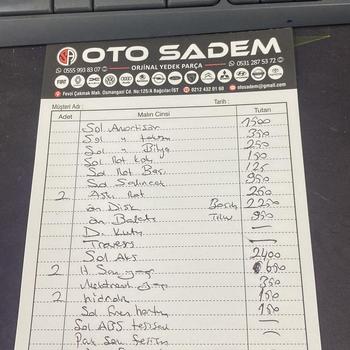 OTO SADEM
ORJİNAL YEDEK PARÇA
0555 993 83 07 0531 287 53 72
Fevzi Çakmak Mah. Osmangazi Cd. No:125/A Bağcılar/İST 0212 432 01 68 otosadem@gmail.com
Müşteri Adı : Tarih :
Adet Malın Cinsi Tutarı
Sol Amortisör 1500
Sol " takoz 350
Sol " Bilya 250
Sol Rot Kolu 150
Sol Rot Başı 125
Sol Salıncak 950
2 Askı Rot 260
ön Disk Bosch 2250
ön Balata Trw 950
D. Kutu
Travers
Sol Aks 2400
2 650
350
2 hidrolik 150
Sol fren hortum 150
Sol ABS tesisatı